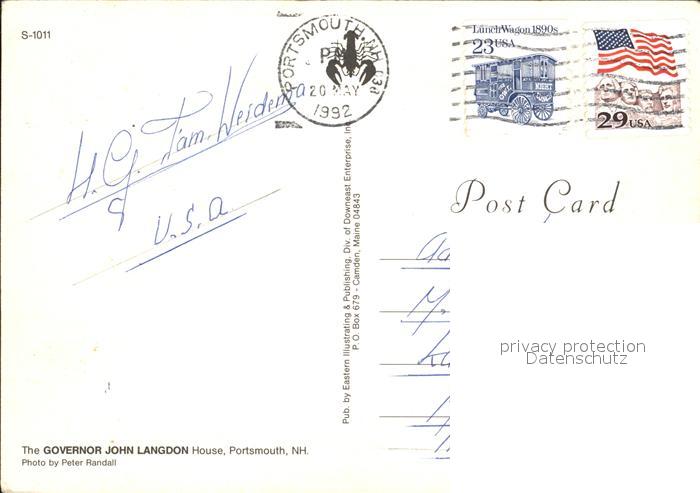 S-1011
PORTSMOUTH, NH 038
PM
20 MAY
1992
Lunch Wagon 1890s
23 USA
29 USA
Post Card
H. G. Fam. Weidema
U.S.A.
Pub. by Eastern Illustrating & Publishing, Div. of Downeast Enterprise, Inc.
P.O. Box 679 - Camden, Maine 04843
privacy protection
Datenschutz
The GOVERNOR JOHN LANGDON House, Portsmouth, NH.
Photo by Peter Randall